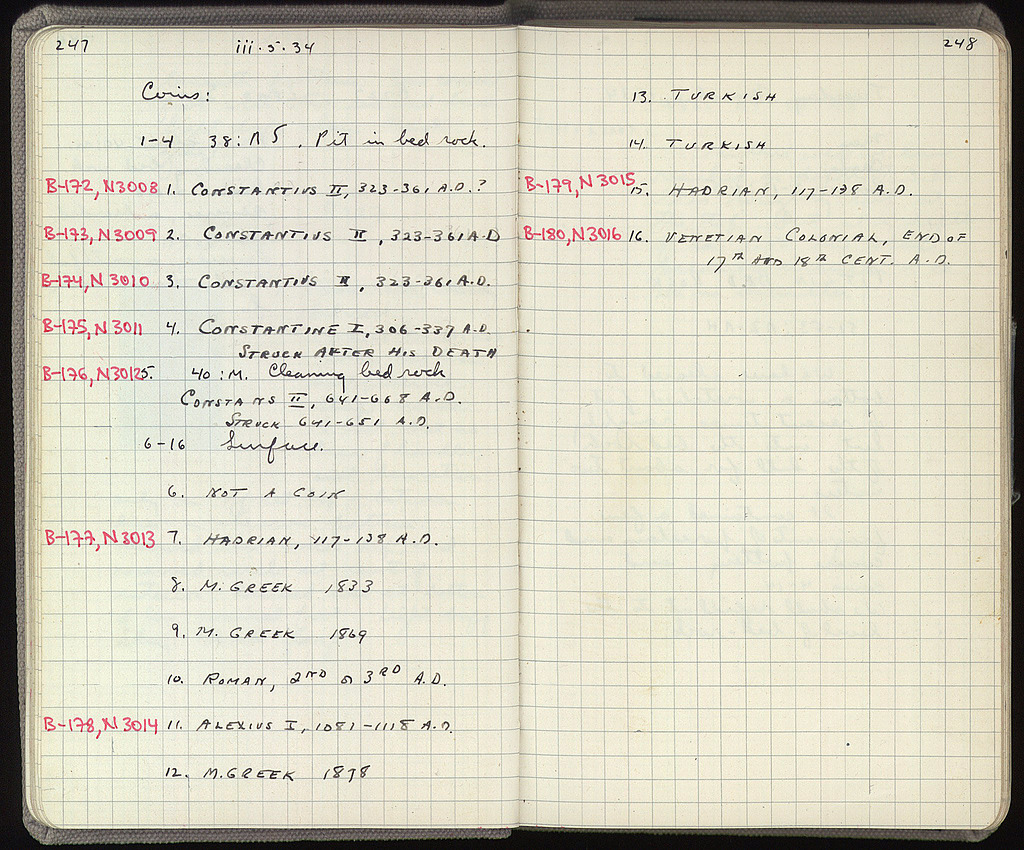 247 iii·5·34
Coins:
1-4 38:Λ5. Pit in bed rock.
B-172, N3008 1. CONSTANTIUS II, 323-361 A.D.?
B-173, N3009 2. CONSTANTIUS II, 323-361 A.D
B-174, N3010 3. CONSTANTIUS II, 323-361 A.D.
B-175, N3011 4. CONSTANTINE I, 306-337 A.D.
STRUCK AFTER HIS DEATH
B-176, N3012 5. 40:M. Cleaning bed rock
CONSTANS II, 641-668 A.D.
STRUCK 641-651 A.D.
6-16 Surface.
6. NOT A COIN
B-177, N3013 7. HADRIAN, 117-138 A.D.
8. M. GREEK 1833
9. M. GREEK 1869
10. ROMAN, 2ND or 3RD A.D.
B-178, N3014 11. ALEXIUS I, 1081-1118 A.D.
12. M. GREEK 1878
248
13. TURKISH
14. TURKISH
B-179, N3015 15. HADRIAN, 117-138 A.D.
B-180, N3016 16. VENETIAN COLONIAL, END OF
17TH AND 18TH CENT. A.D.